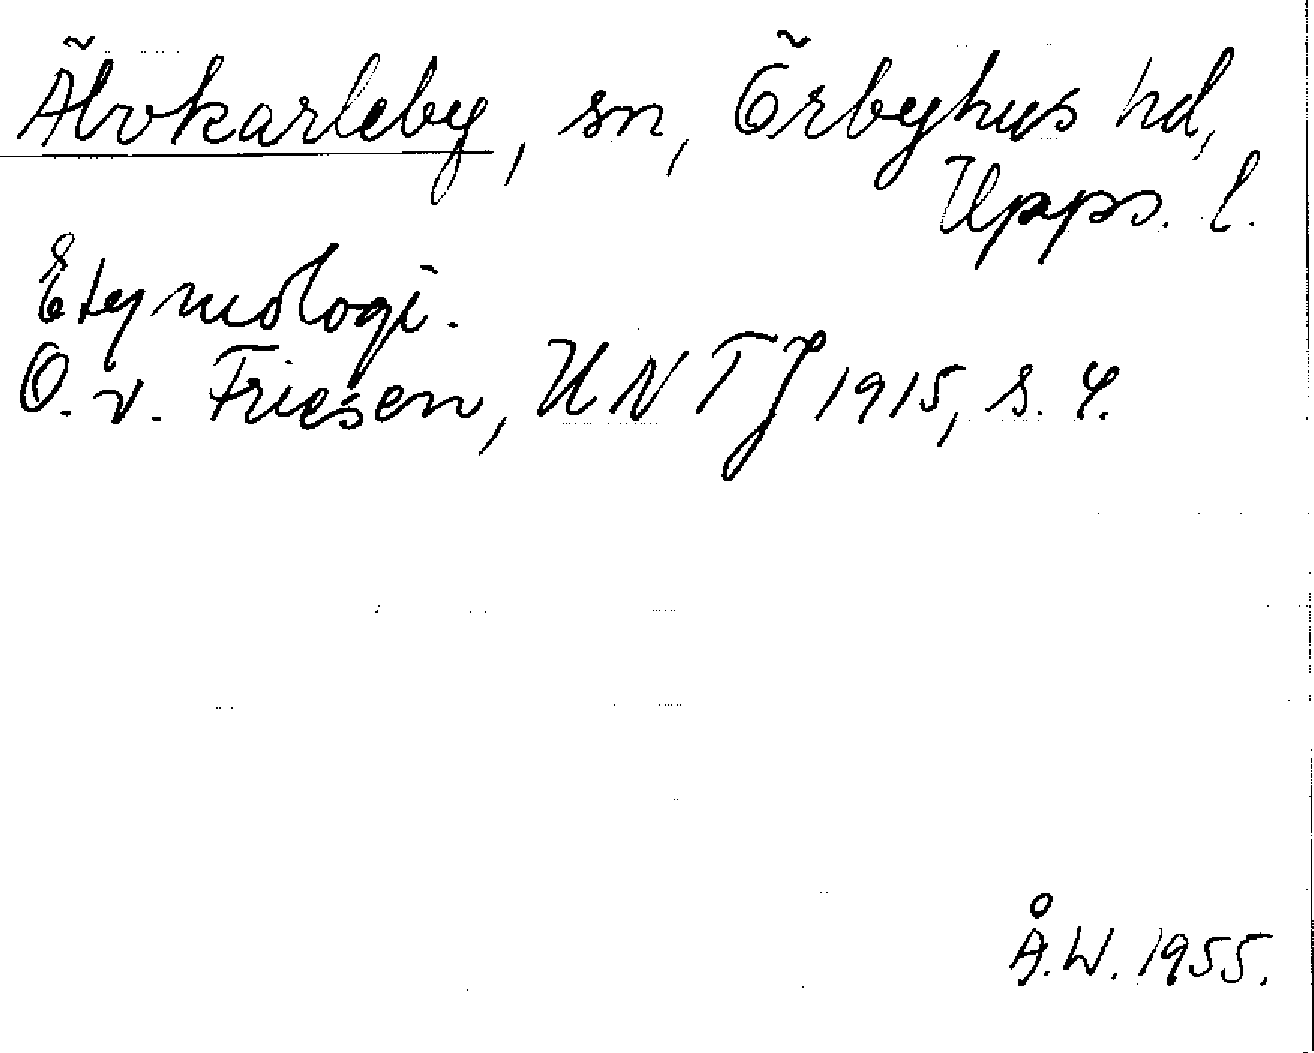 Älvkarleby, sn, Örbyhus hd,
Upps. l.
Etymologi.
O. v. Friesen, UNTJ 1915, s. 4.
Å.W. 1955.